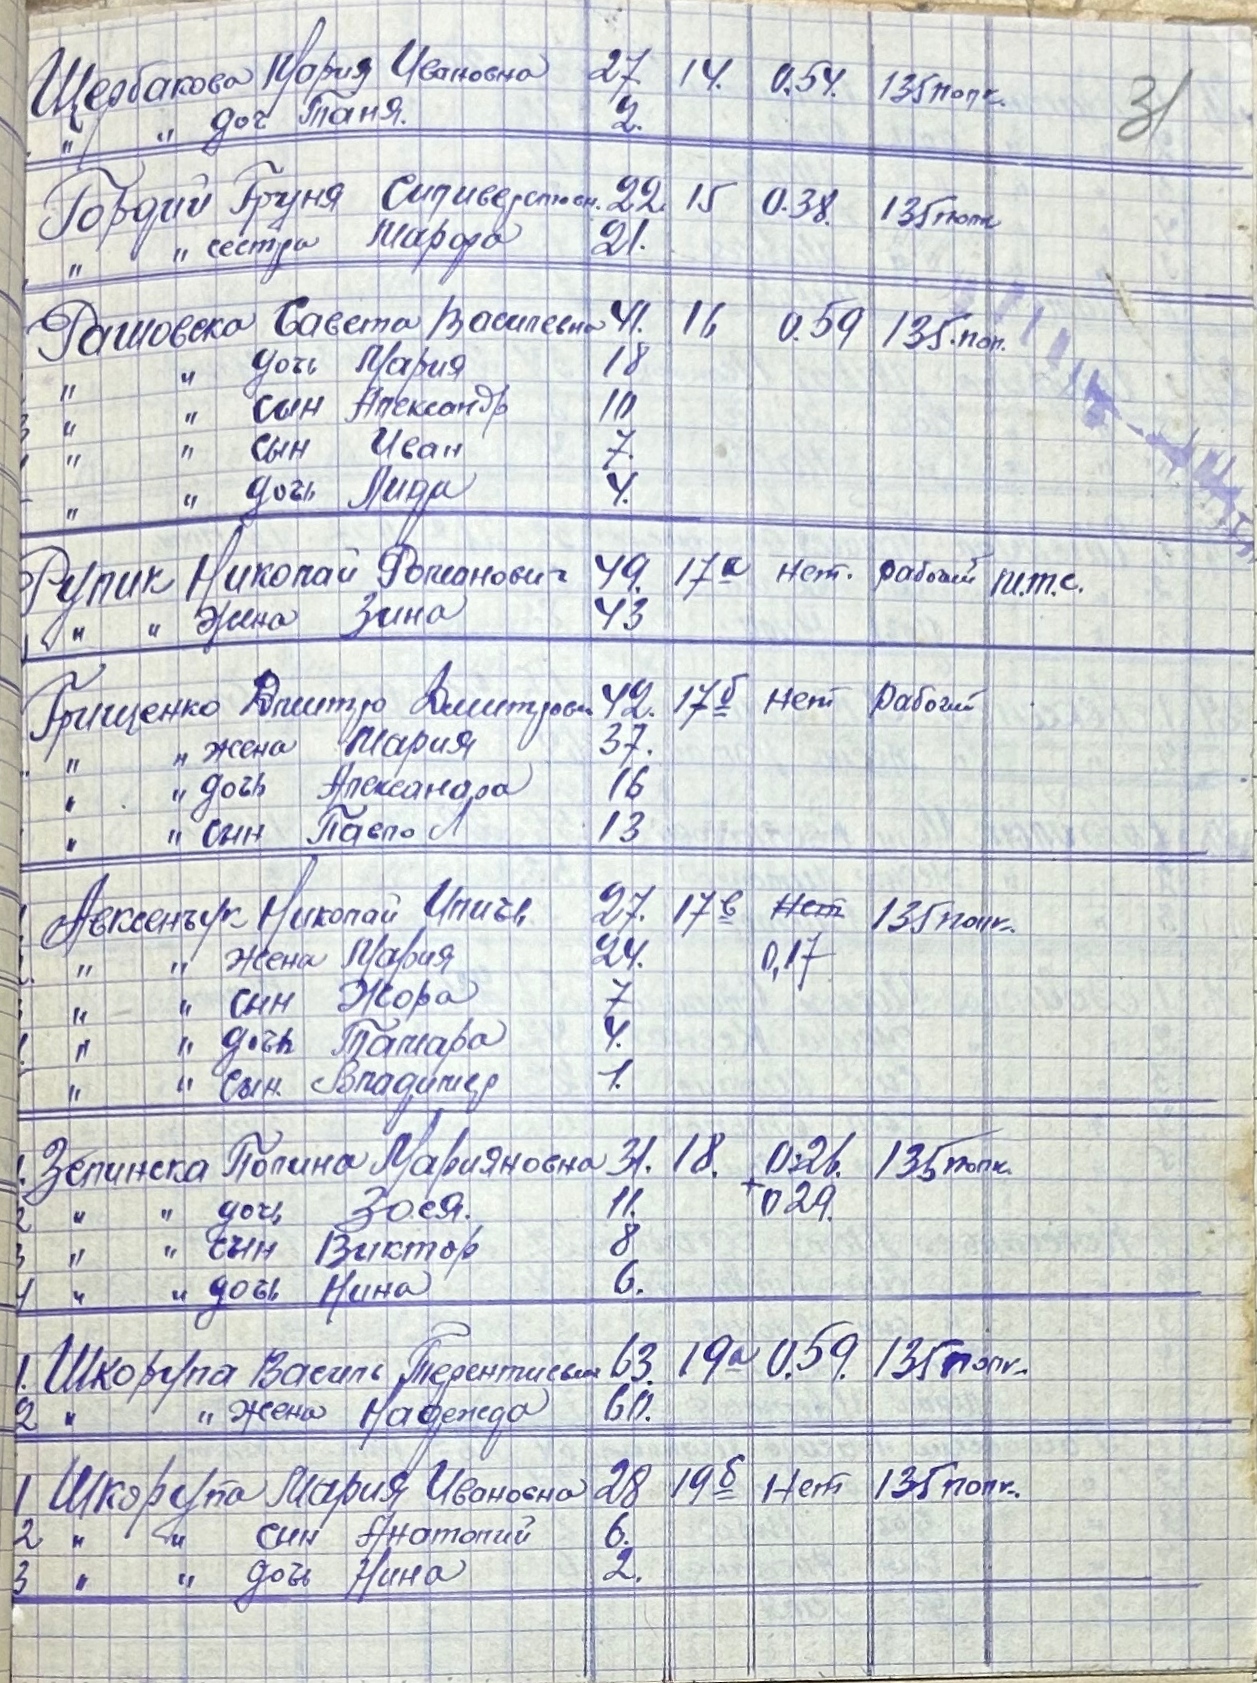 31
Щербакова Мария Ивановна 27. 14. 0.54. 135 полк.
" " доч Таня. 2.
Гордий Груня Силиверстовн. 22. 15 0.38. 135 полк
" " сестра Марфа 21.
Рашовска Савета Василевна 41. 16 0.59 135. пол.
" " дочь Мария 18
3 " " сын Александр 10
" " сын Иван 7.
" " дочь Лида 4.
Рулик Николай Романович 49. 17а Нет. рабочий М.Т.С.
" " жена Зина 43
Грищенко Дмитро Дмитрови 42. 17б Нет рабочий
" " жена Мария 37.
" " дочь Александра 16
" " сын Павло 13
1. Авксенчук Николай Ильич 27. 17в Нет 135 полк.
2. " " жена Мария 24. 0,17
3 " " сын Жора 7
" " дочь Тамара 4.
" " сын. Владимер 1.
1. Зелинска Полина Марияновна 31. 18. 0.26. 135 полк.
2 " " дочь Зося. 11. + 0 29.
3 " " сын Виктор 8
4 " " дочь Нина 6.
1. Шкорупа Василь Терентиевич 63. 19а 0.59. 135 полк.
2 " " жена Надежда 60.
1 Шкорупа Мария Ивановна 28 19б Нет 135 полк.
2 " " син Анатолий 6.
3 " " дочь Нина 2.